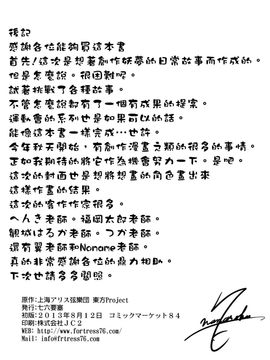 後記
感謝各位能夠買這本書
首先!這次是想著創作妖夢的日常故事而作成的。
但是怎麼說。很困難呢。
試著挑戰了各種故事。
不管怎麼說都有了一個有成果的提案。
運動會的系列也是如果可以的話。
能像這本書一樣完成…也許。
今年秋天開始,有創作漫畫之類的很多的事情。
正如我期待的將它作為機會努力一下。是吧。
這次的封面也是想將想畫的角色畫出來
這樣作畫的結果。
這次的客作作家很多。
へんき老師。福岡太郎老師。
観城はるか老師。つか老師。
還有翼老師和Noname老師。
真的非常感謝各位的鼎力相助。
下次也請多多關照。
原作:上海アリス弦樂団 東方Project
発行:七六要塞
初版:2013年8月12日 コミックマーケット84
印刷:株式会社JC2
WEB: http://www.fortress76.com/
Mail: info@fortress76.com